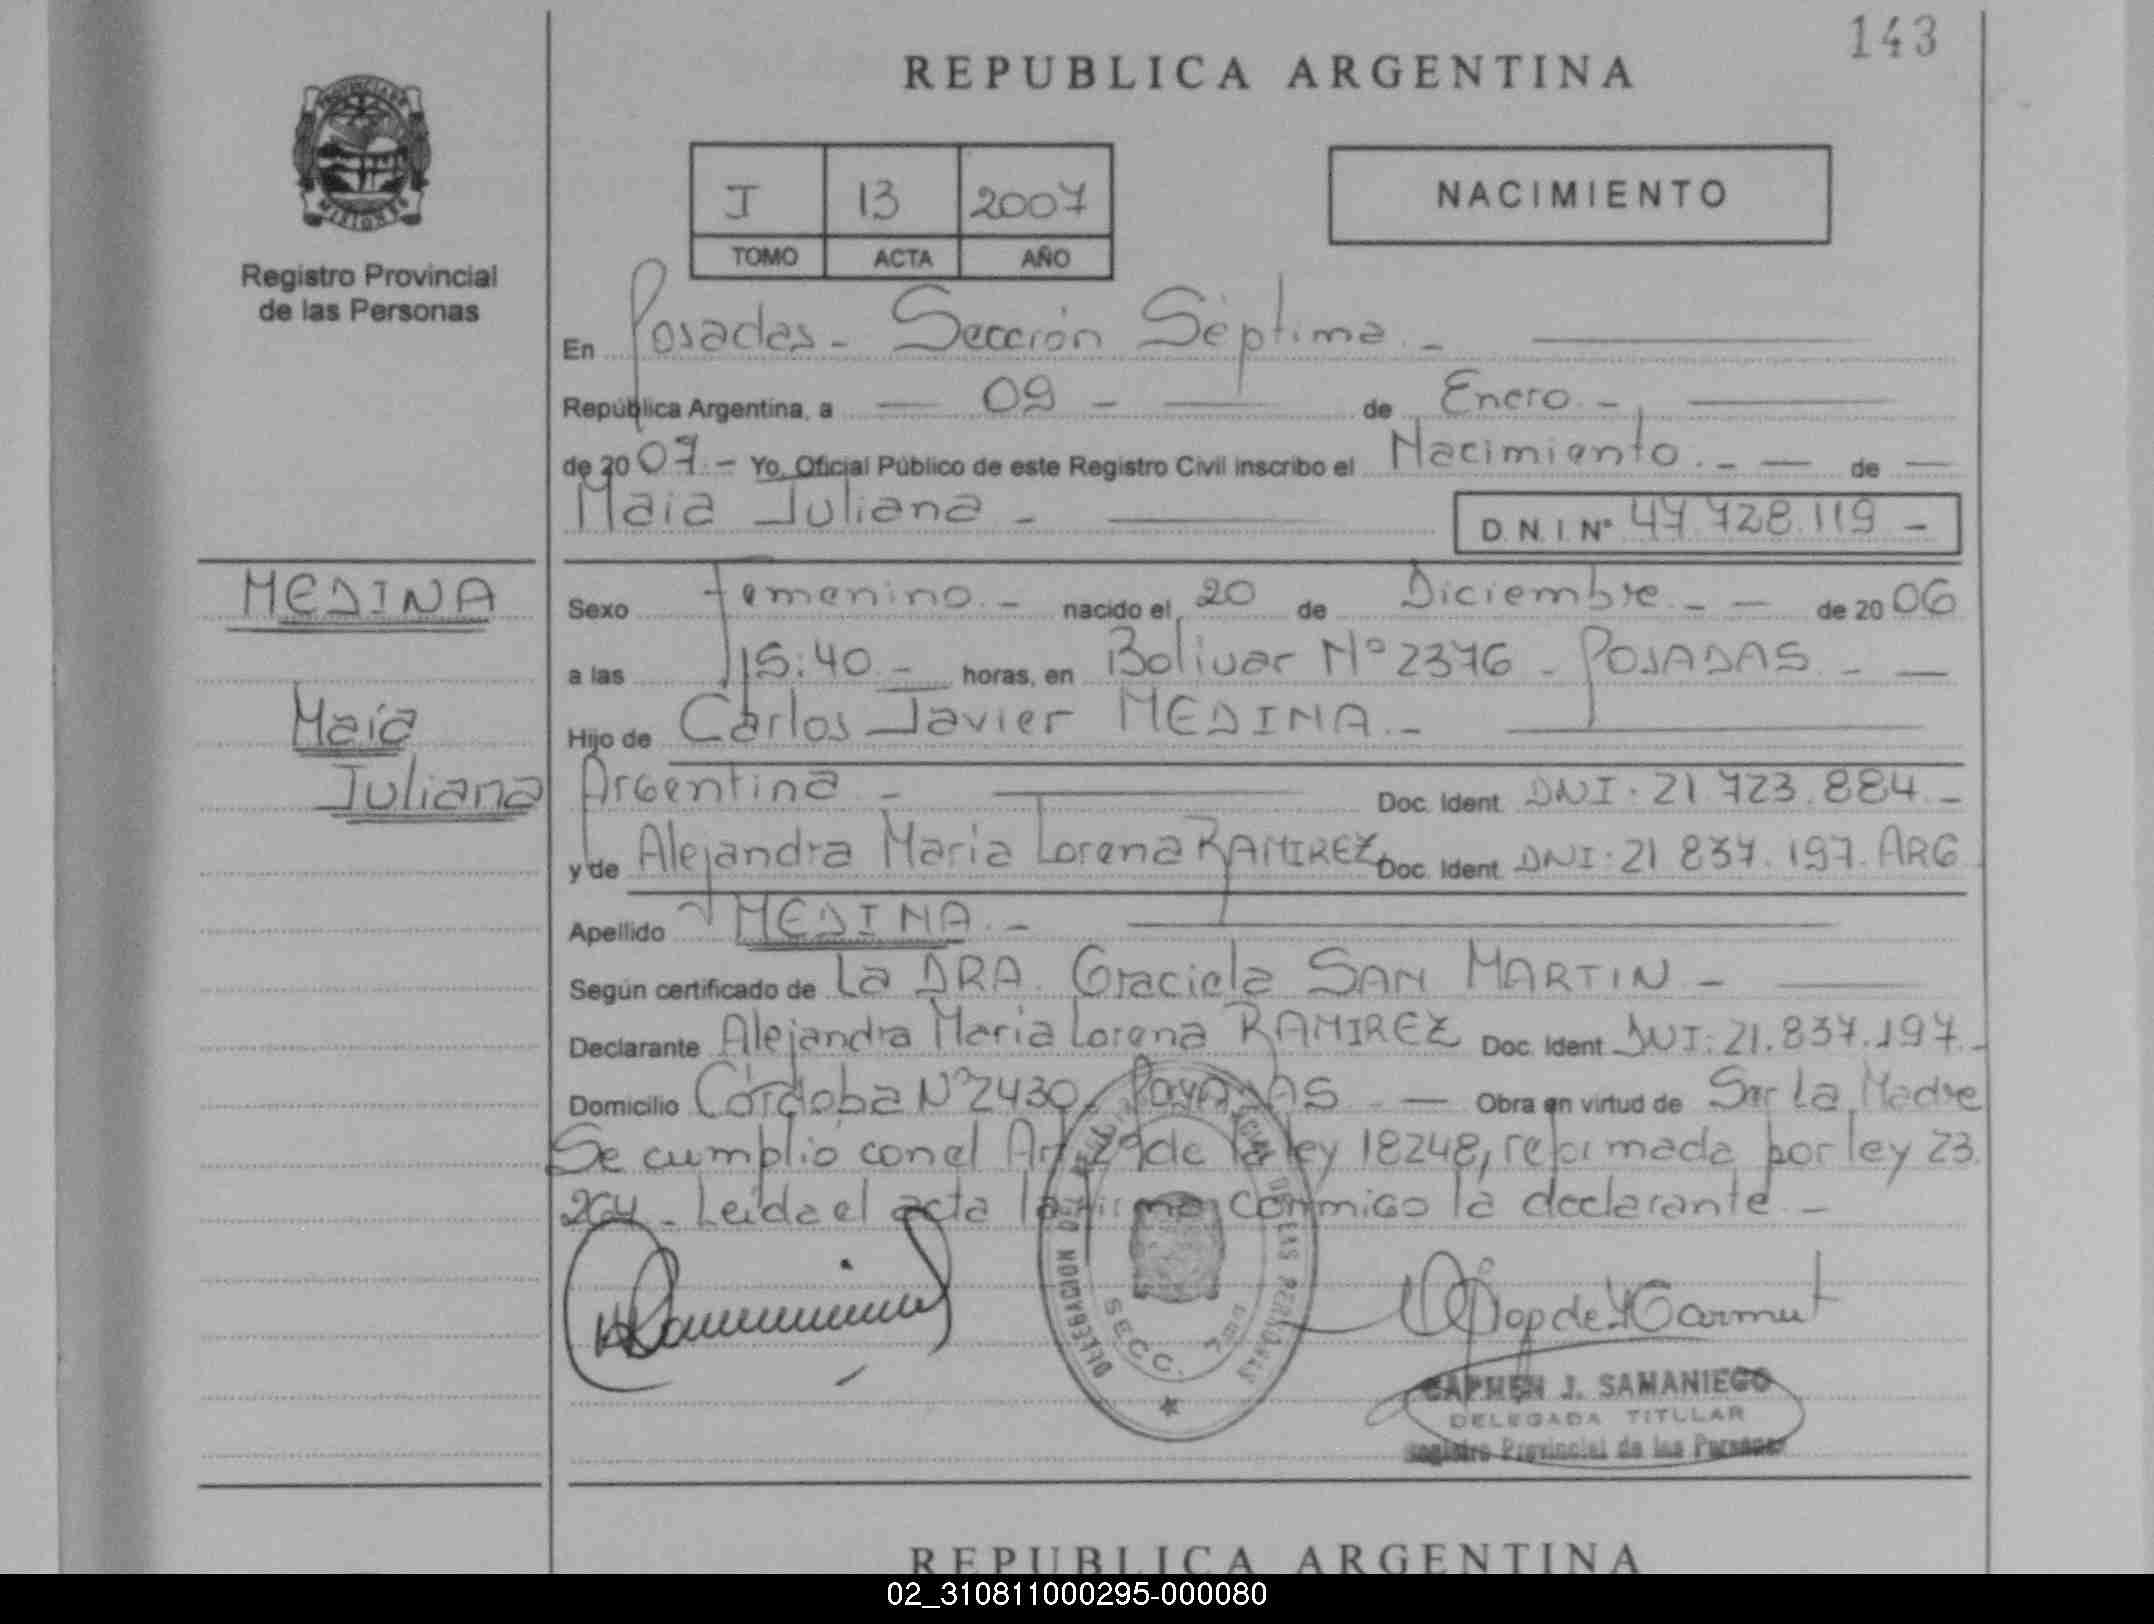 143
REPUBLICA ARGENTINA
PROVINCIA DE MISIONES
Registro Provincial
de las Personas
I 13 2007
TOMO ACTA AÑO
NACIMIENTO
En Posadas - Sección Séptima. -
República Argentina, a — 09 - — de Enero. - —
de 2007. - Yo, Oficial Público de este Registro Civil inscribo el Nacimiento. - — de —
Maia Juliana - — D.N.I. Nº 47.728.119 -
MEDINA
Maia
Juliana
Sexo Femenino. - nacido el 20 de Diciembre. - — de 2006
a las 15:40. - horas, en Bolivar Nº 2376 - POSADAS. - —
Hijo de Carlos Javier MEDINA. - —
Argentina - — Doc. Ident. DNI. 21.723.884. -
y de Alejandra Maria Lorena RAMIREZ Doc. Ident. DNI: 21.837.197. ARG
Apellido MEDINA. - —
Según certificado de La DRA. Graciela SAN MARTIN - —
Declarante Alejandra Maria Lorena RAMIREZ Doc. Ident. DNI: 21.837.197. -
Domicilio Córdoba Nº 2430, POSADAS - — Obra en virtud de Ser La Madre
Se cumplió con el Art. 29 de la ley 18248, reformada por ley 23.
264 - Leída el acta la firma conmigo la declarante. -
DELEGACION DE LAS PERSONAS
SECC. 7ma
CARMEN J. SAMANIEGO
DELEGADA TITULAR
Registro Provincial de las Personas
REPUBLICA ARGENTINA
02_310811000295-000080